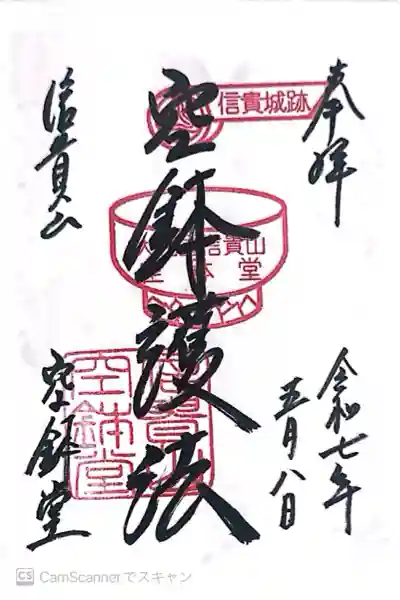 奉拝
令和七年
五月八日
信貴城跡
空鉢護法
信貴山
空鉢堂
信貴山
空鉢堂
CS CamScannerでスキャン